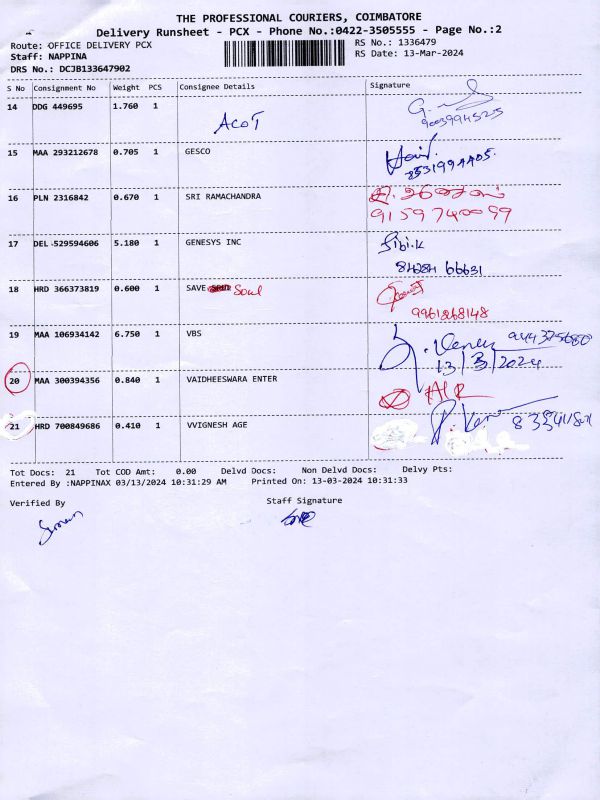 THE PROFESSIONAL COURIERS, COIMBATORE
Delivery Runsheet - PCX - Phone No.:0422-3505555 - Page No.:2
Route: OFFICE DELIVERY PCX RS No.: 1336479
Staff: NAPPINA RS Date: 13-Mar-2024
DRS No.: DCJB133647902
S No Consignment No Weight PCS Consignee Details Signature
14 DDG 449695 1.760 1
ACOT
15 MAA 293212678 0.705 1 GESCO
8531994405.
16 PLN 2316842 0.670 1 SRI RAMACHANDRA
9159740099
17 DEL 529594606 5.180 1 GENESYS INC Sibi.k
84284 66631
18 HRD 366373819 0.600 1 SAVE Soul
9961268148
19 MAA 106934142 6.750 1 VBS
13/3/2024
20 MAA 300394356 0.840 1 VAIDHEESWARA ENTER
21 HRD 700849686 0.410 1 VVIGNESH AGE
Tot Docs: 21 Tot COD Amt: 0.00 Delvd Docs: Non Delvd Docs: Delvy Pts:
Entered By :NAPPINAX 03/13/2024 10:31:29 AM Printed On: 13-03-2024 10:31:33
Verified By Staff Signature